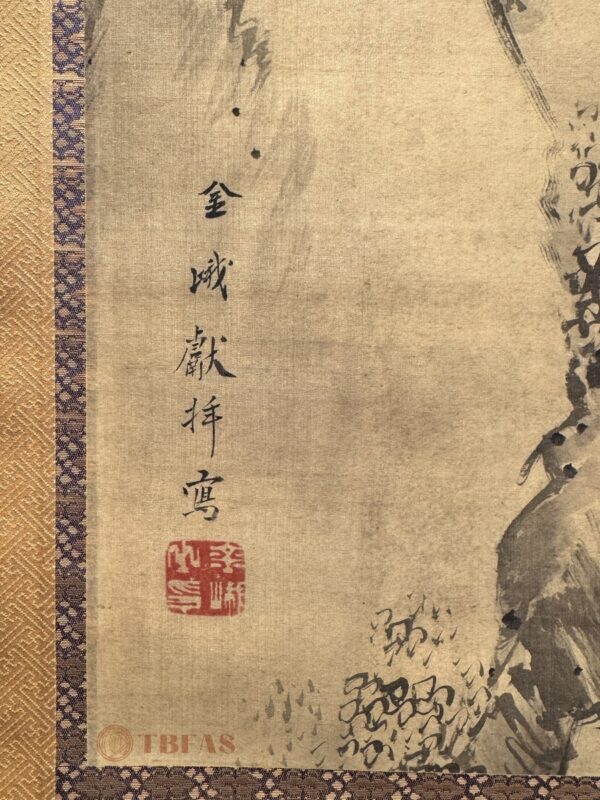 金峨獻拝寫
TBFAS